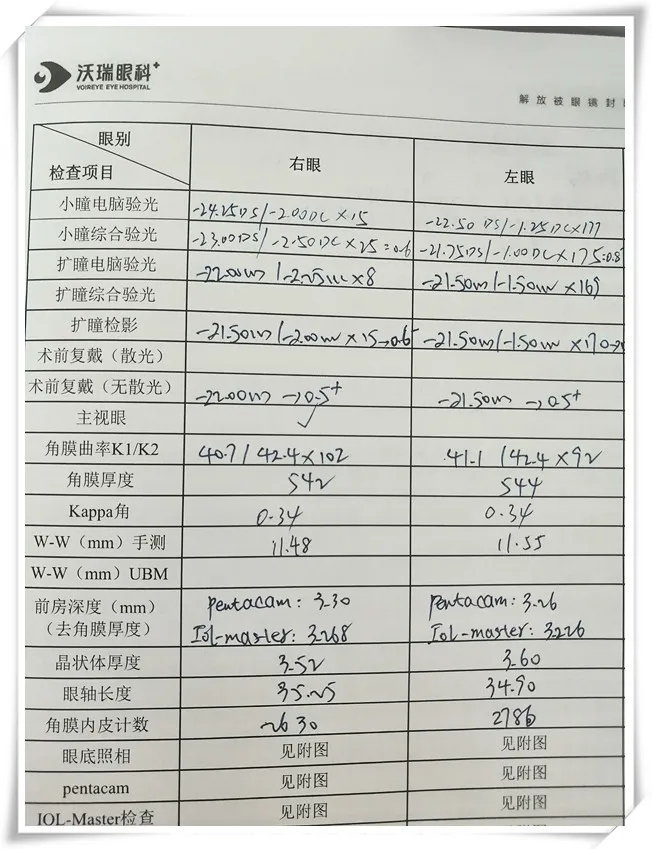 沃瑞眼科
VOIREYE EYE HOSPITAL
解放被眼镜封
眼别
检查项目
右眼
左眼
小瞳电脑验光 -24.25DS/-2.00DC×15 -22.50DS/-1.25DC×177
小瞳综合验光 -23.00DS/-2.50DC×25=0.6 -21.75DS/-1.00DC×175=0.8
扩瞳电脑验光 -22.00 ×8 -21.50 /-1.50 ×169
扩瞳综合验光
扩瞳检影 -21.50 /-2.00 ×15→0.6 -21.50 /-1.50 ×170→
术前复戴（散光）
术前复戴（无散光） -22.00 →0.5+ -21.50 →0.5+
主视眼 ✓
角膜曲率K1/K2 40.7/42.4×102 41.1/42.4×92
角膜厚度 542 544
Kappa角 0.34 0.34
W-W（mm）手测 11.48 11.55
W-W（mm）UBM
前房深度（mm） pentacam: 3.30 pentacam: 3.26
（去角膜厚度） Iol-master: 3.268 Iol-master: 3.226
晶状体厚度 3.52 3.60
眼轴长度 35.25 34.90
角膜内皮计数 2630 2786
眼底照相 见附图 见附图
pentacam 见附图 见附图
IOL-Master检查 见附图 见附图